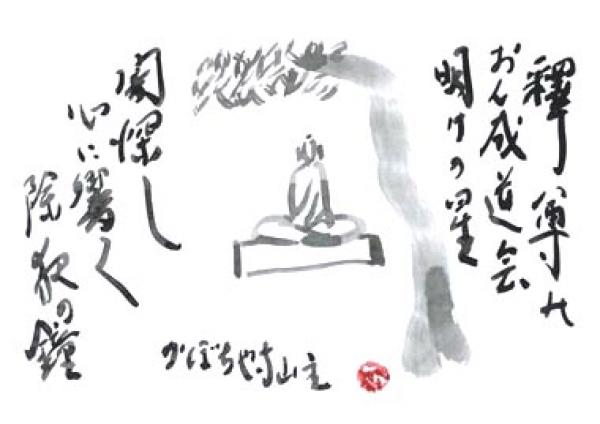 釋尊の
おん成道会
明けの星
闇深し
心に響く
除夜の鐘
かぼちゃ寺山主